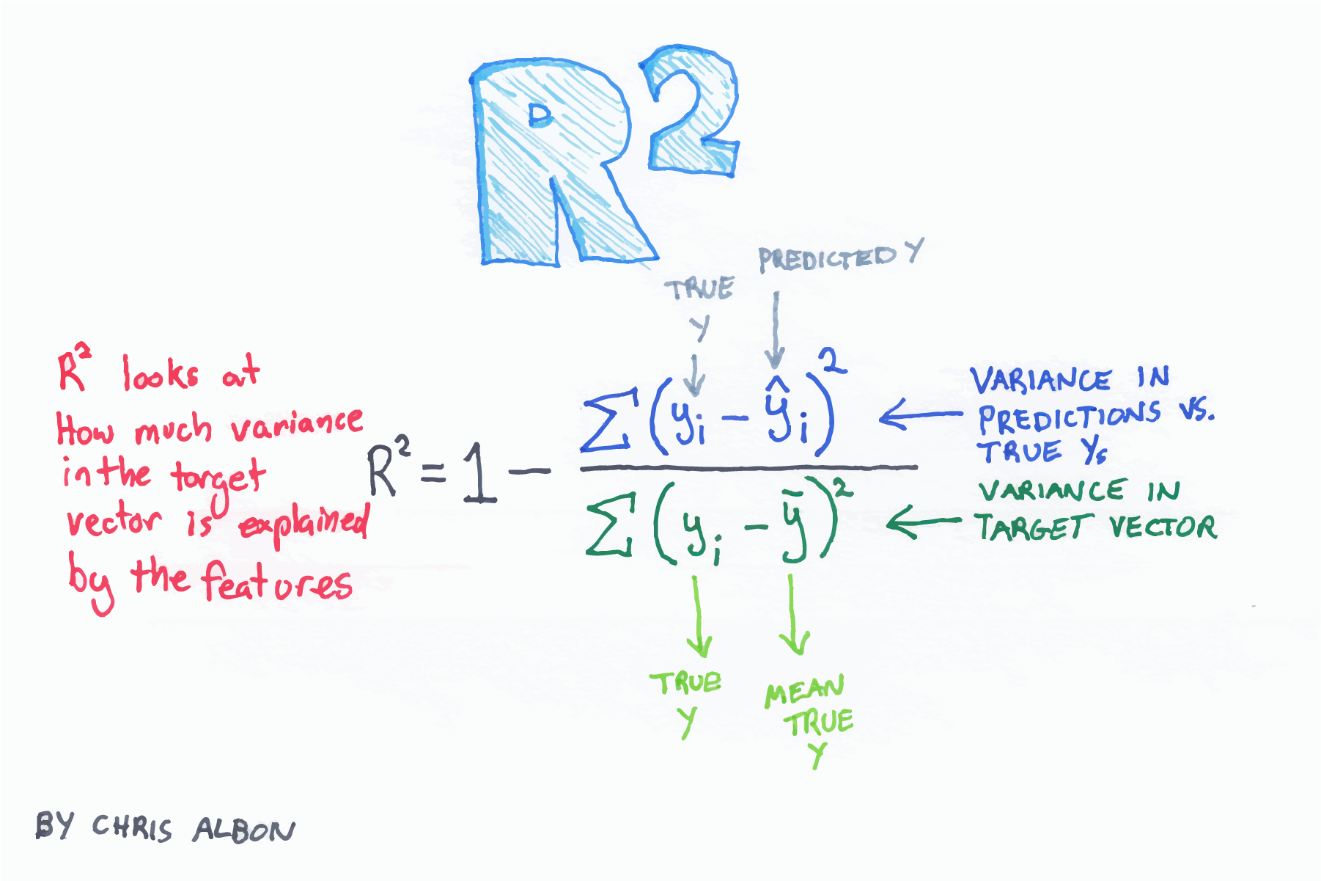 R²
PREDICTED Y
TRUE
Y
R² looks at
How much variance
in the target
vector is explained
by the features
R² = 1 − Σ(yᵢ − ŷᵢ)² / Σ(yᵢ − ȳ)²
VARIANCE IN
PREDICTIONS VS.
TRUE Ys
VARIANCE IN
TARGET VECTOR
TRUE
Y
MEAN
TRUE
Y
BY CHRIS ALBON